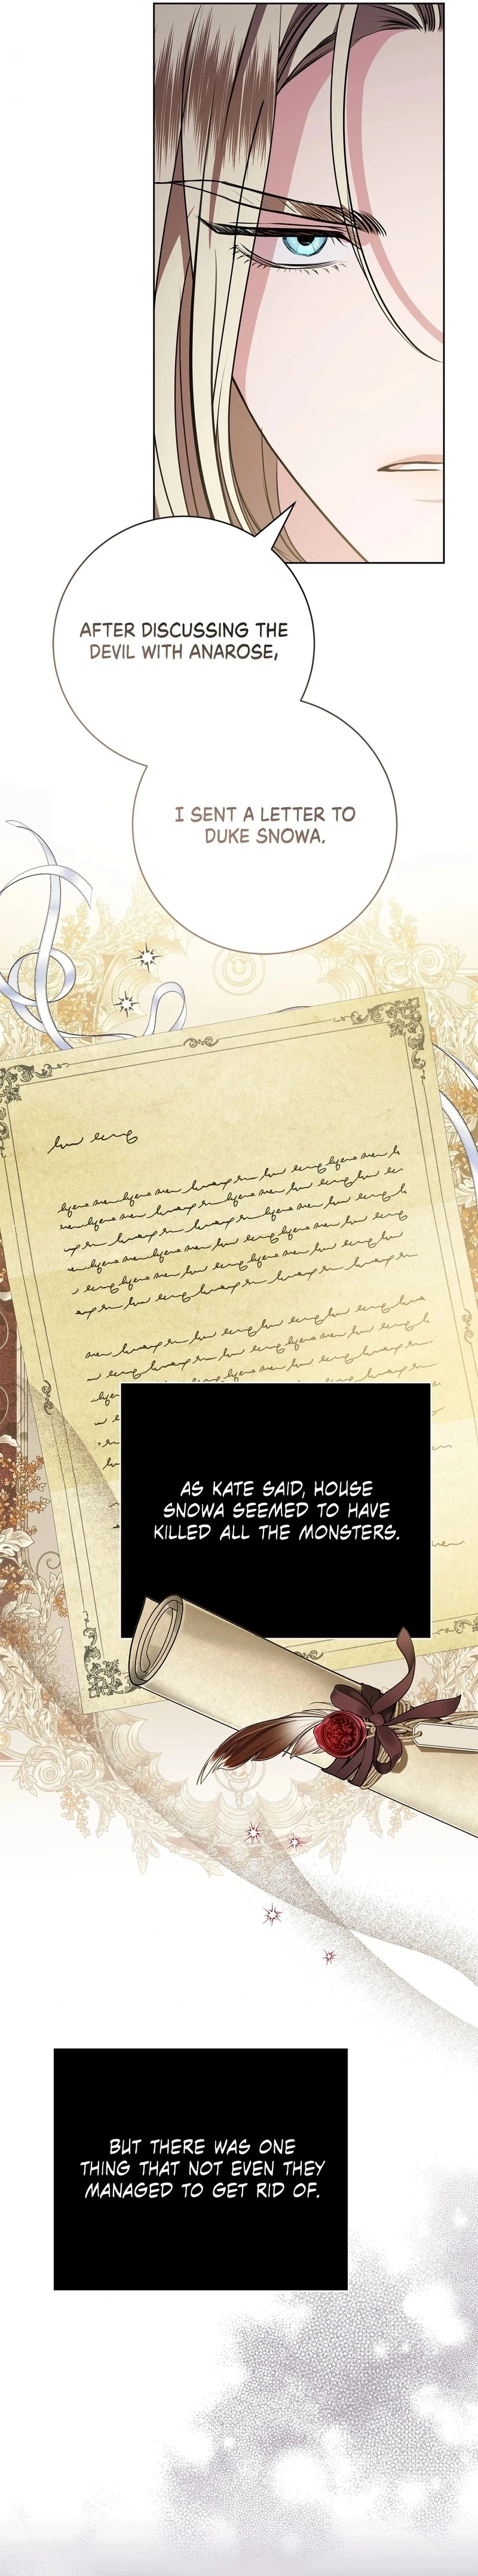 AFTER DISCUSSING THE
DEVIL WITH ANAROSE,
I SENT A LETTER TO
DUKE SNOWA.
AS KATE SAID, HOUSE
SNOWA SEEMED TO HAVE
KILLED ALL THE MONSTERS.
BUT THERE WAS ONE
THING THAT NOT EVEN THEY
MANAGED TO GET RID OF.